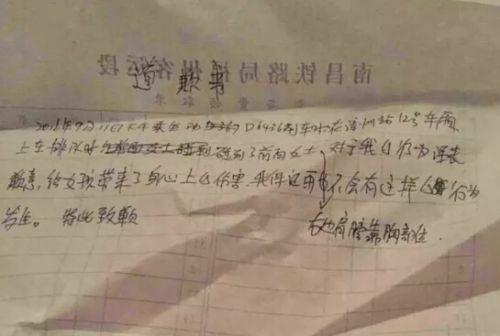 南昌铁路局福州客运段
道歉书
2015年9月11日下午乘坐动车的D6436列车的在漳州站12号车厢
上车排队时碰到了前面女士,对于我行为深表
歉意,给女孩带来了身心上的伤害,我保证再也不会有这样的行为
发生。特此致歉
右边肩膀靠胸部位.